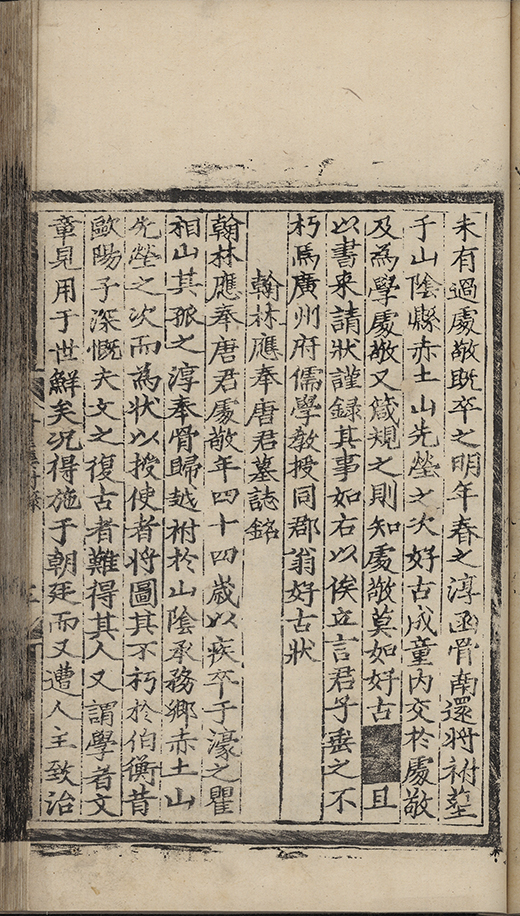 未有過處敬既卒之明年春之淳函骨南還將祔塟
于山陰縣赤土山先塋之次好古成童內交於處敬
及為學處敬又箴規之則知處敬莫如好古且
以書来請狀謹録其事如右以俟立言君子垂之不
朽焉廣州府儒學教授同郡翁好古狀
翰林應奉唐君墓誌銘
翰林應奉唐君處敬年四十四歳以疾卒于濠之瞿
相山其孤之淳奉骨歸越祔於山陰承務鄉赤土山
先塋之次而為状以授使者将圖其不朽於伯衡昔
歐陽子深慨夫文之復古者難得其人又謂學者文
章見用于世鮮矣况得施于朝廷而又遭人主致治